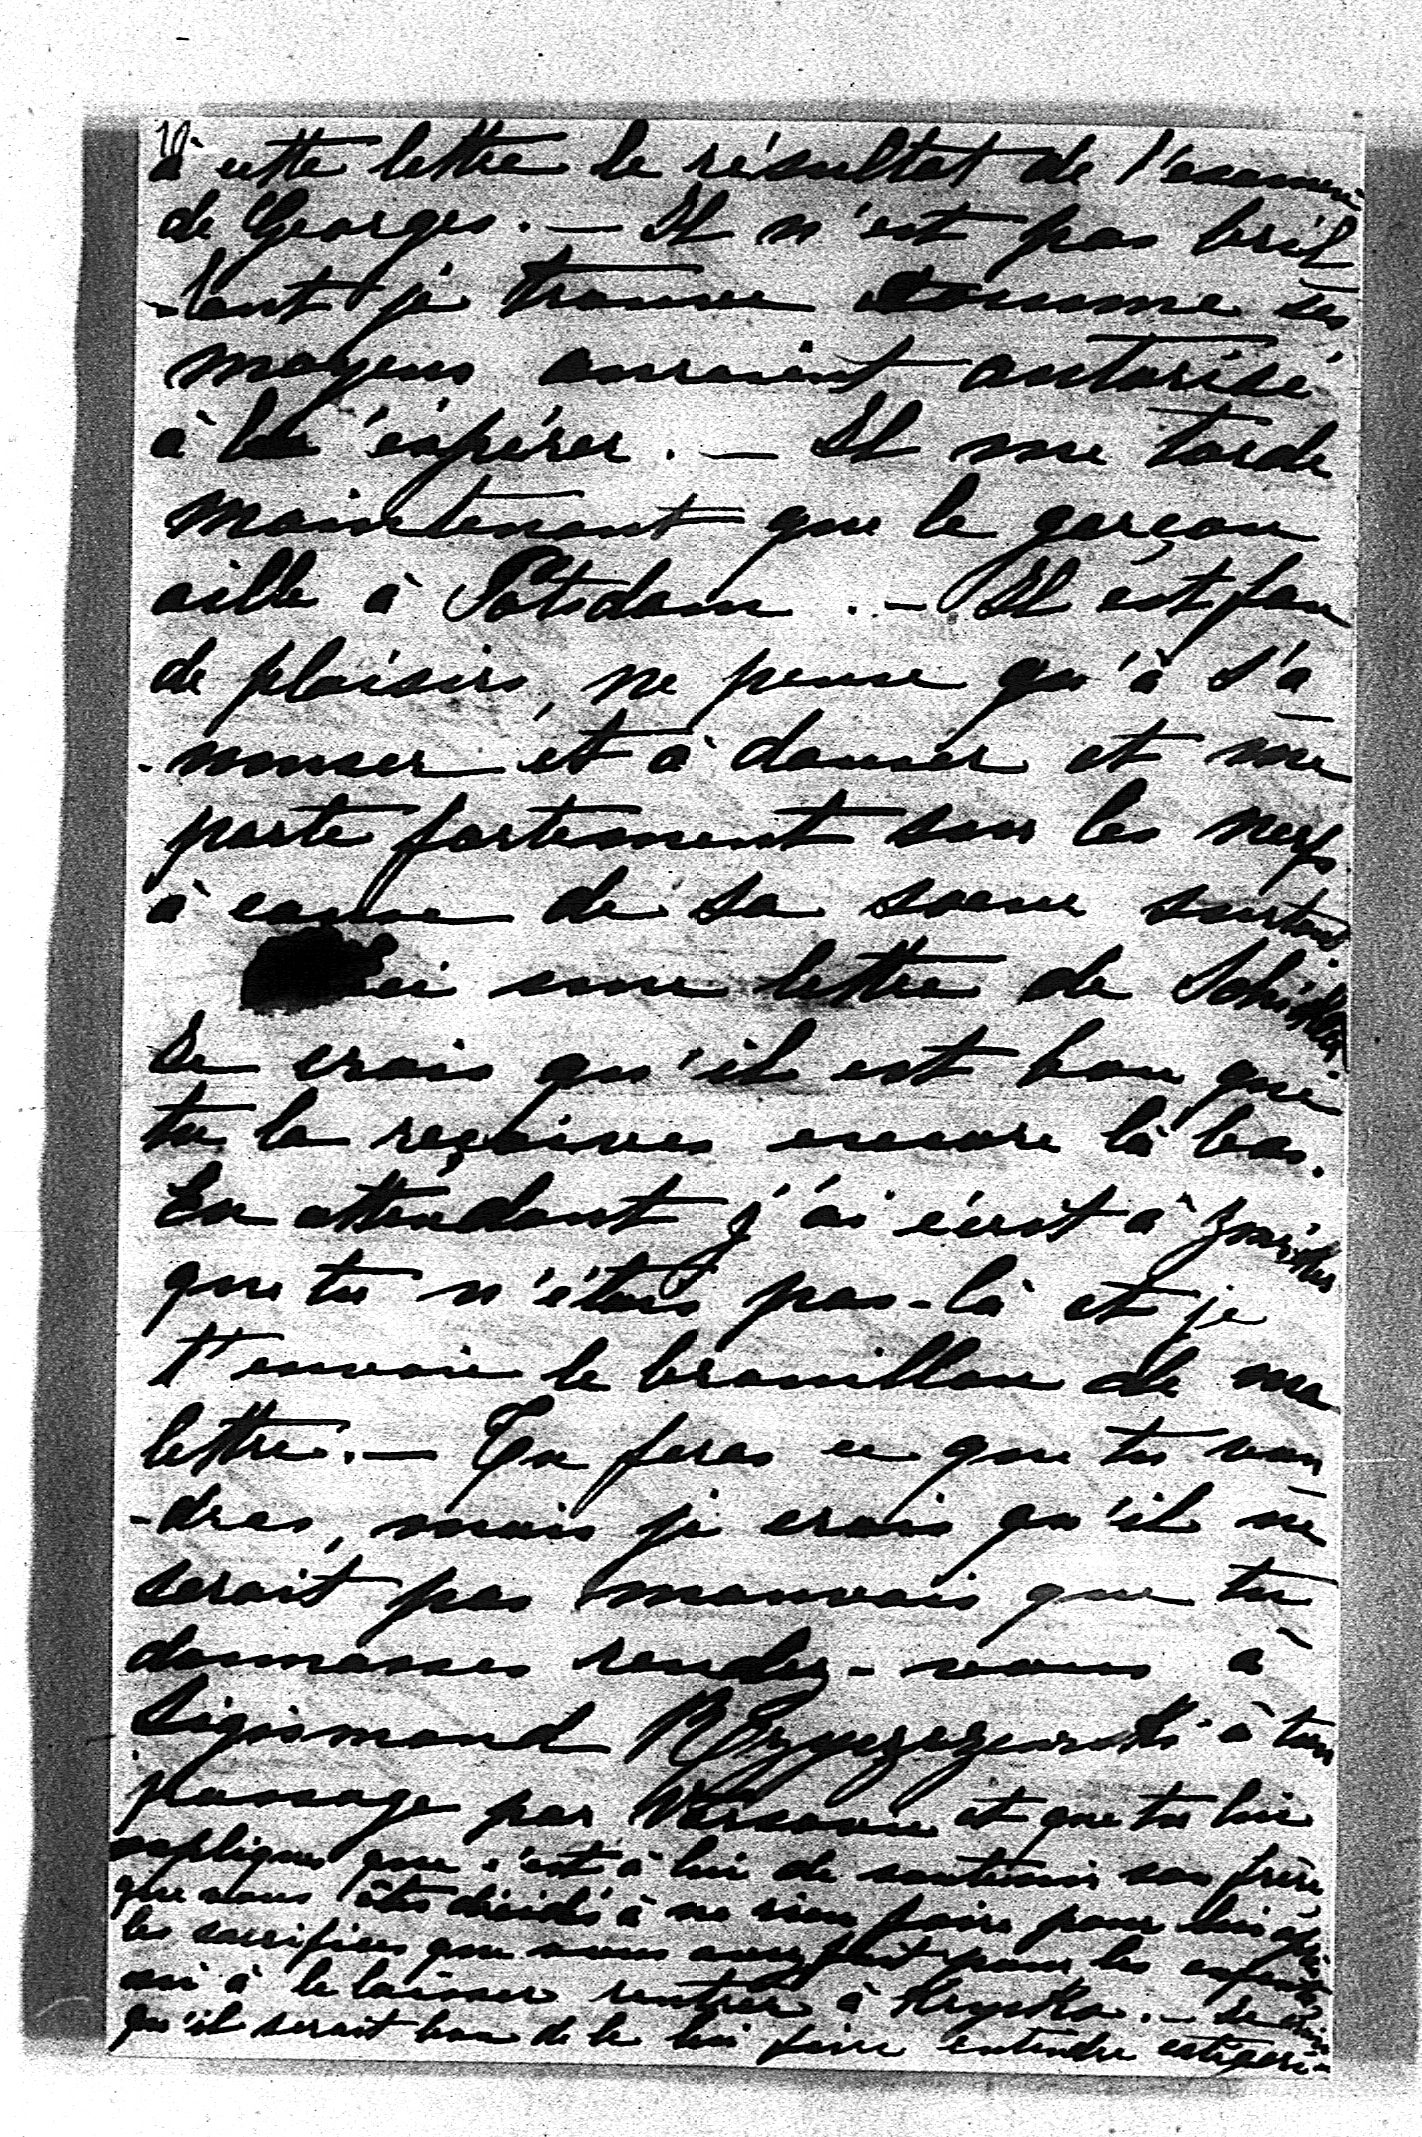 à cette lettre le résultat de l'examen
de Georges. — Il n'est pas bril
-lant je trouve comme ses
moyens auraient autorisé
à l'espérer. — Il me tarde
maintenant que le garçon
aille à Potsdam. — Il est fou
de plaisirs, ne pense qu'à s'a
-muser et à danser et me
porte fortement sur les nerfs
à cause de sa soeur surtout.
une lettre de
Je crois qu'il est bon que
tu la reçoives encore là bas.
En attendant j'ai écrit à
que tu n'étais pas-là et je
t'envoie le brouillon de ma
lettre. — Tu feras ce que tu vou
-dras, mais je crois qu'il ne
serait pas mauvais que tu
donnasses rendez-vous à
Sigismond à ton
passage par Varsovie et que tu lui
expliques que c'est à lui de soutenir son frère
que vous êtes décidés à ne rien faire pour lui après
les sacrifices que vous avez fait pour les enfants
ni à le laisser rentrer à . — Je crois
qu'il serait bon de le lui faire entendre